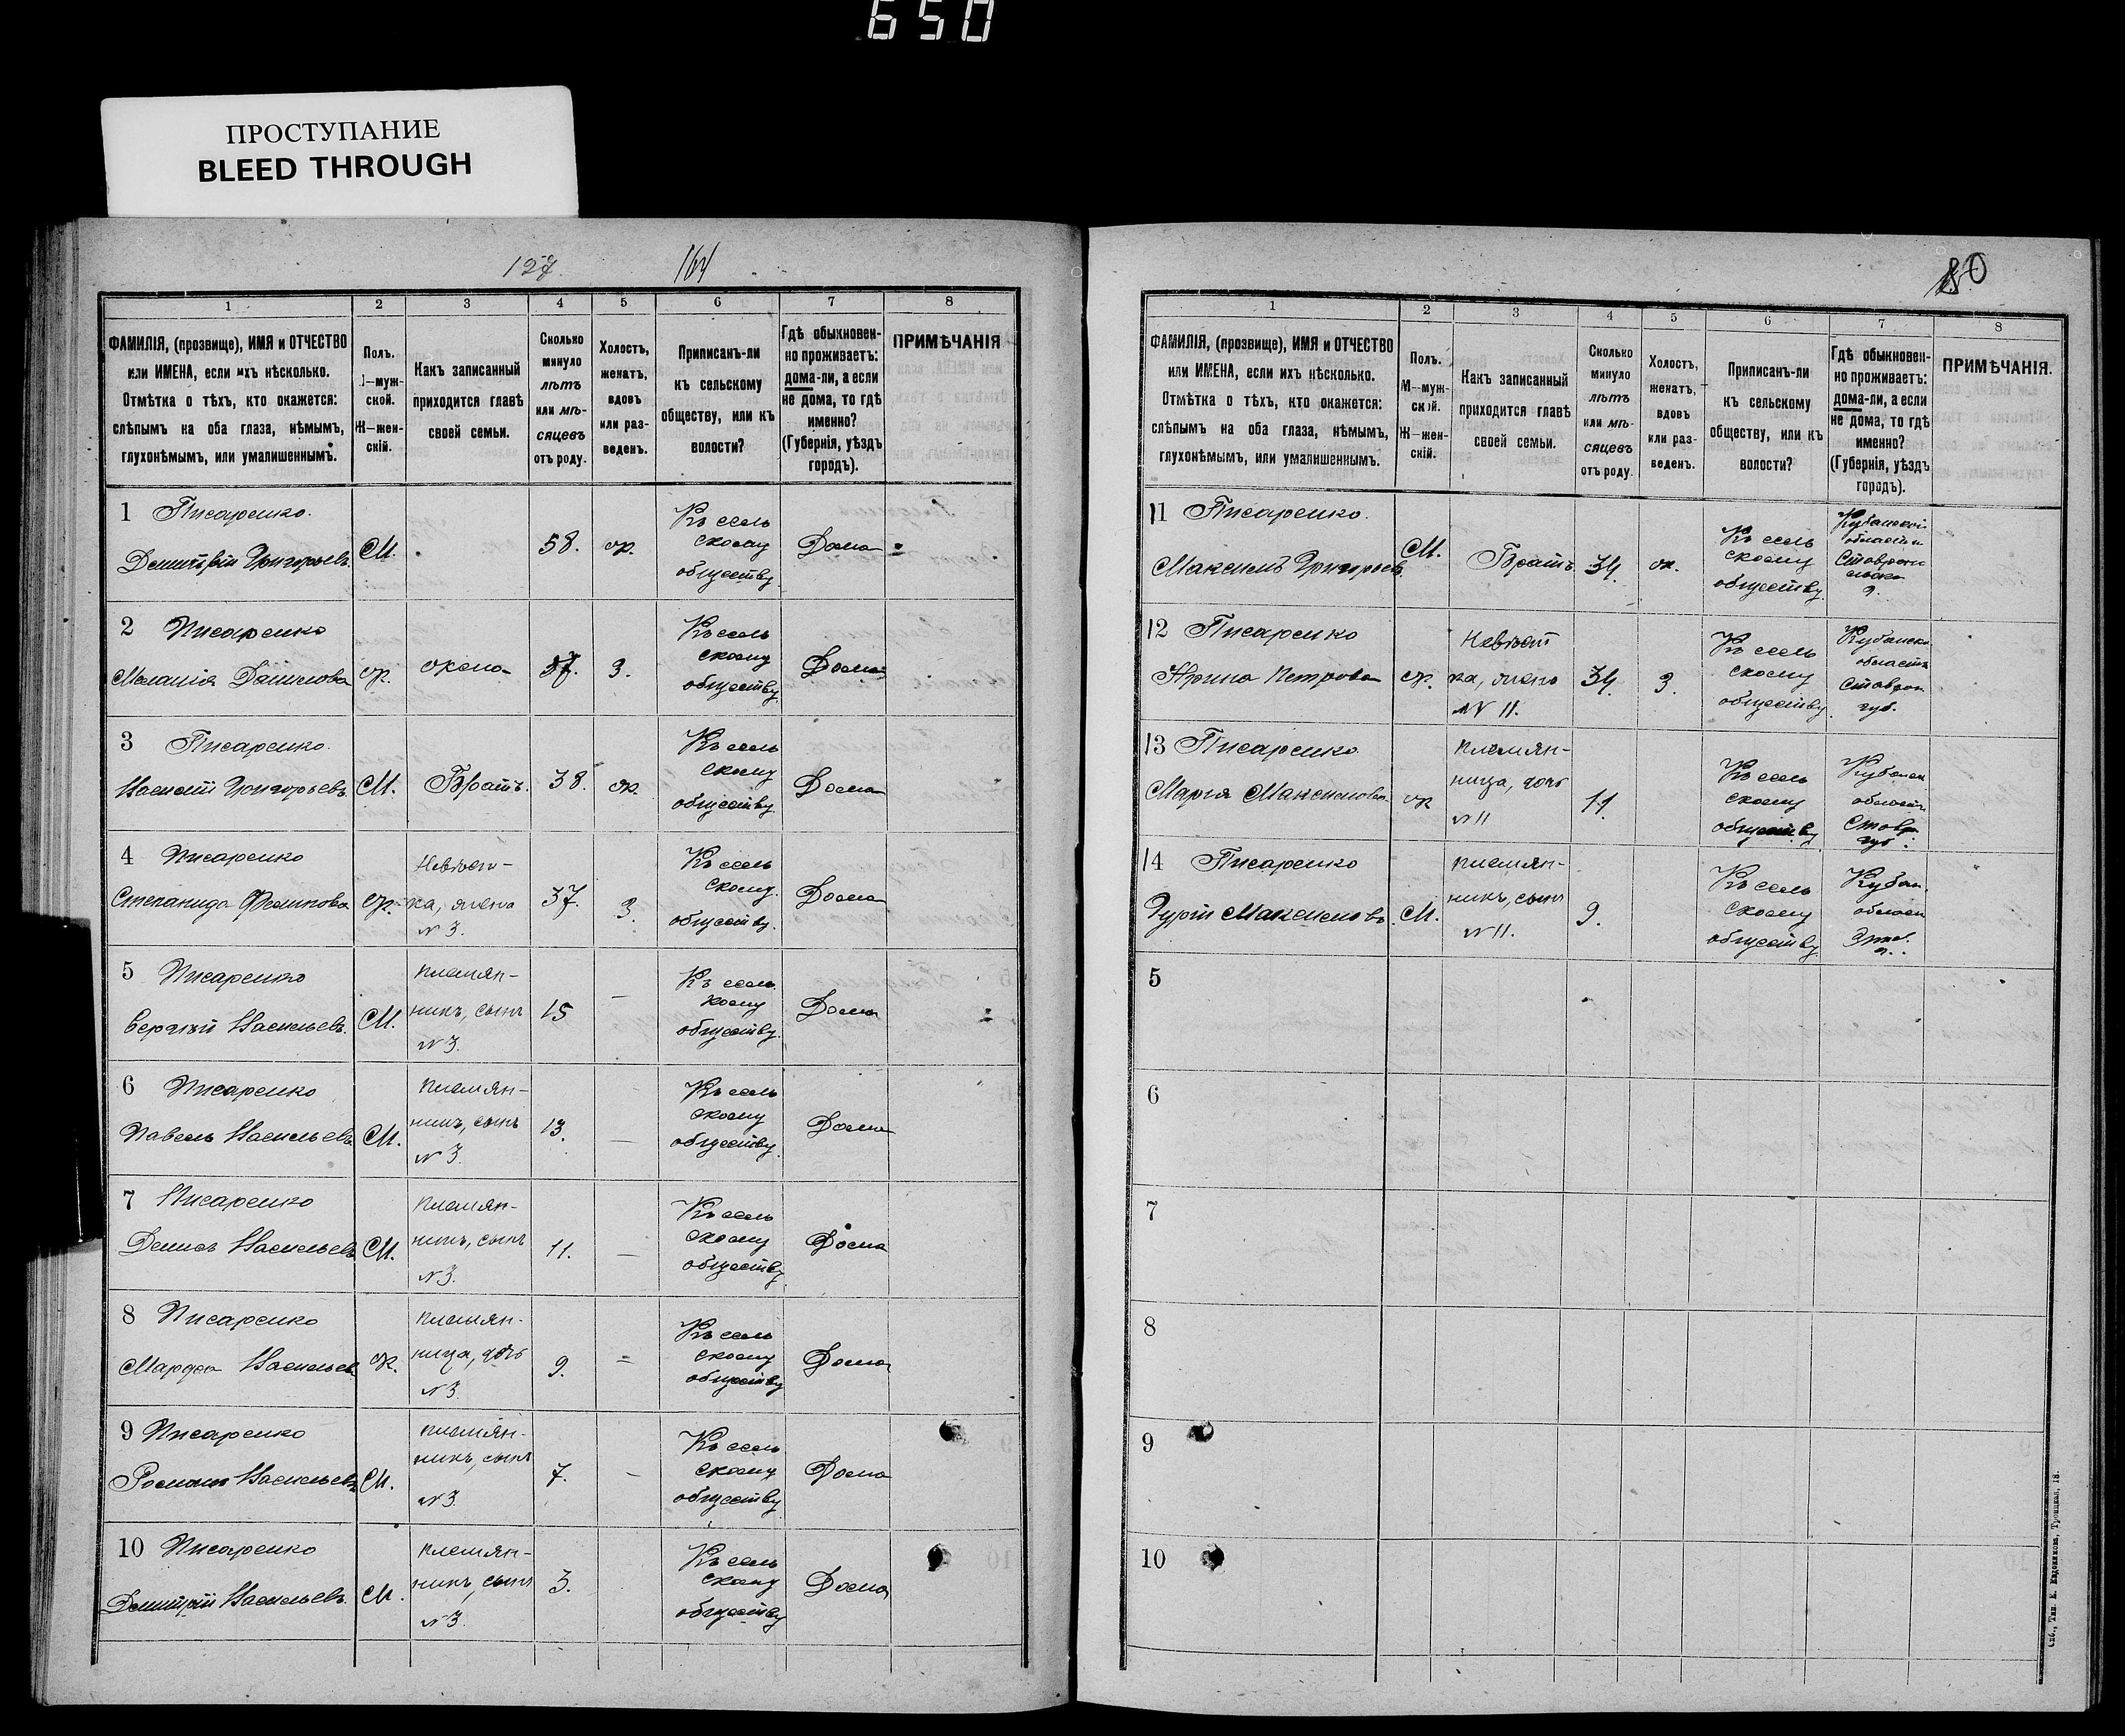 650
ПРОСТУПАНИЕ
BLEED THROUGH
127. 164
1 2 3 4 5 6 7 8
ФАМИЛІЯ, (прозвище), ИМЯ и ОТЧЕСТВО
или ИМЕНА, если ихъ нѣсколько.
Отмѣтка о тѣхъ, кто окажется:
слѣпымъ на оба глаза, нѣмымъ,
глухонѣмымъ, или умалишеннымъ.
Полъ.
М—муж-
ской.
Ж—жен-
скій.
Какъ записанный
приходится главѣ
своей семьи.
Сколько
минуло
лѣтъ
или мѣ-
сяцевъ
отъ роду.
Холостъ,
женатъ,
вдовъ
или раз-
веденъ.
Приписанъ-ли
къ сельскому
обществу, или къ
волости?
Гдѣ обыкновен-
но проживаетъ:
дома-ли, а если
не дома, то гдѣ
именно?
(Губернія, уѣздъ
городъ).
ПРИМѢЧАНІЯ
1 Писаренко.
Дмитрій Григорьевъ. М. 58. ж.
Къ сель
скому
обществу
Дома
2 Писаренко
Меланія Данилова ж. жена 57. З.
Къ сель
скому
обществу.
Дома
3 Писаренко.
Василій Григорьевъ. М. Братъ. 38. ж.
Къ сель
скому
обществу.
Дома
4 Писаренко
Степанида Филипова ж.
Невѣст-
ка, жена
№ 3.
37. З.
Къ сель
скому
обществу.
Дома
5 Писаренко
Сергѣй Васильевъ. М.
племян-
никъ, сынъ
№ 3.
15 —
Къ сель
скому
обществу.
Дома
6 Писаренко
Павелъ Васильевъ М.
племян-
никъ, сынъ
№ 3.
13. —
Къ сель
скому
обществу.
Дома
7 Писаренко
Денисъ Васильевъ М.
племян-
никъ, сынъ
№ 3.
11. —
Къ сель
скому
обществу
Дома
8 Писаренко
Марфа Васильев ж.
племян-
ница, дочь
№ 3.
9.
Къ сель
скому
обществу
Дома
9 Писаренко
Романъ Васильевъ М.
племян-
никъ, сынъ
№ 3
7. —
Къ сель
скому
обществу
Дома
10 Писаренко
Дмитрій Васильевъ. М.
племян-
никъ, сынъ
№ 3.
3.
Къ сель
скому
обществу
Дома
1 2 3 4 5 6 7 8
ФАМИЛІЯ, (прозвище), ИМЯ и ОТЧЕСТВО
или ИМЕНА, если ихъ нѣсколько.
Отмѣтка о тѣхъ, кто окажется:
слѣпымъ на оба глаза, нѣмымъ,
глухонѣмымъ, или умалишеннымъ.
Полъ.
М—муж-
ской.
Ж—жен-
скій.
Какъ записанный
приходится главѣ
своей семьи.
Сколько
минуло
лѣтъ
или мѣ-
сяцевъ
отъ роду.
Холостъ,
женатъ,
вдовъ
или раз-
веденъ.
Приписанъ-ли
къ сельскому
обществу, или къ
волости?
Гдѣ обыкновен-
но проживаетъ:
дома-ли, а если
не дома, то гдѣ
именно?
(Губернія, уѣздъ
городъ).
ПРИМѢЧАНІЯ.
11 Писаренко.
Максимъ Григорьев. М. Братъ. 34. ж.
Къ сель
скому
обществу.
Кубанской
области
12 Писаренко
Ирина Петрова ж.
Невѣст
ка, жена
№ 11.
34. З.
Къ сель
скому
обществу.
Кубанск.
область
Ставроп
губ.
13 Писаренко
Марія Максимова ж
племян-
ница, дочь
№ 11
11.
Къ сель
скому
обществу
Кубанск
область
Ставр.
губ.
14 Писаренко
Гурій Максимовъ. М.
племян-
никъ, сынъ
№ 11.
9.
Къ сель
скому
обществу
Кубан.
5
6
7
8
9
10
Спб., Тип. Е. Евдокимова, Троицкая, 18.